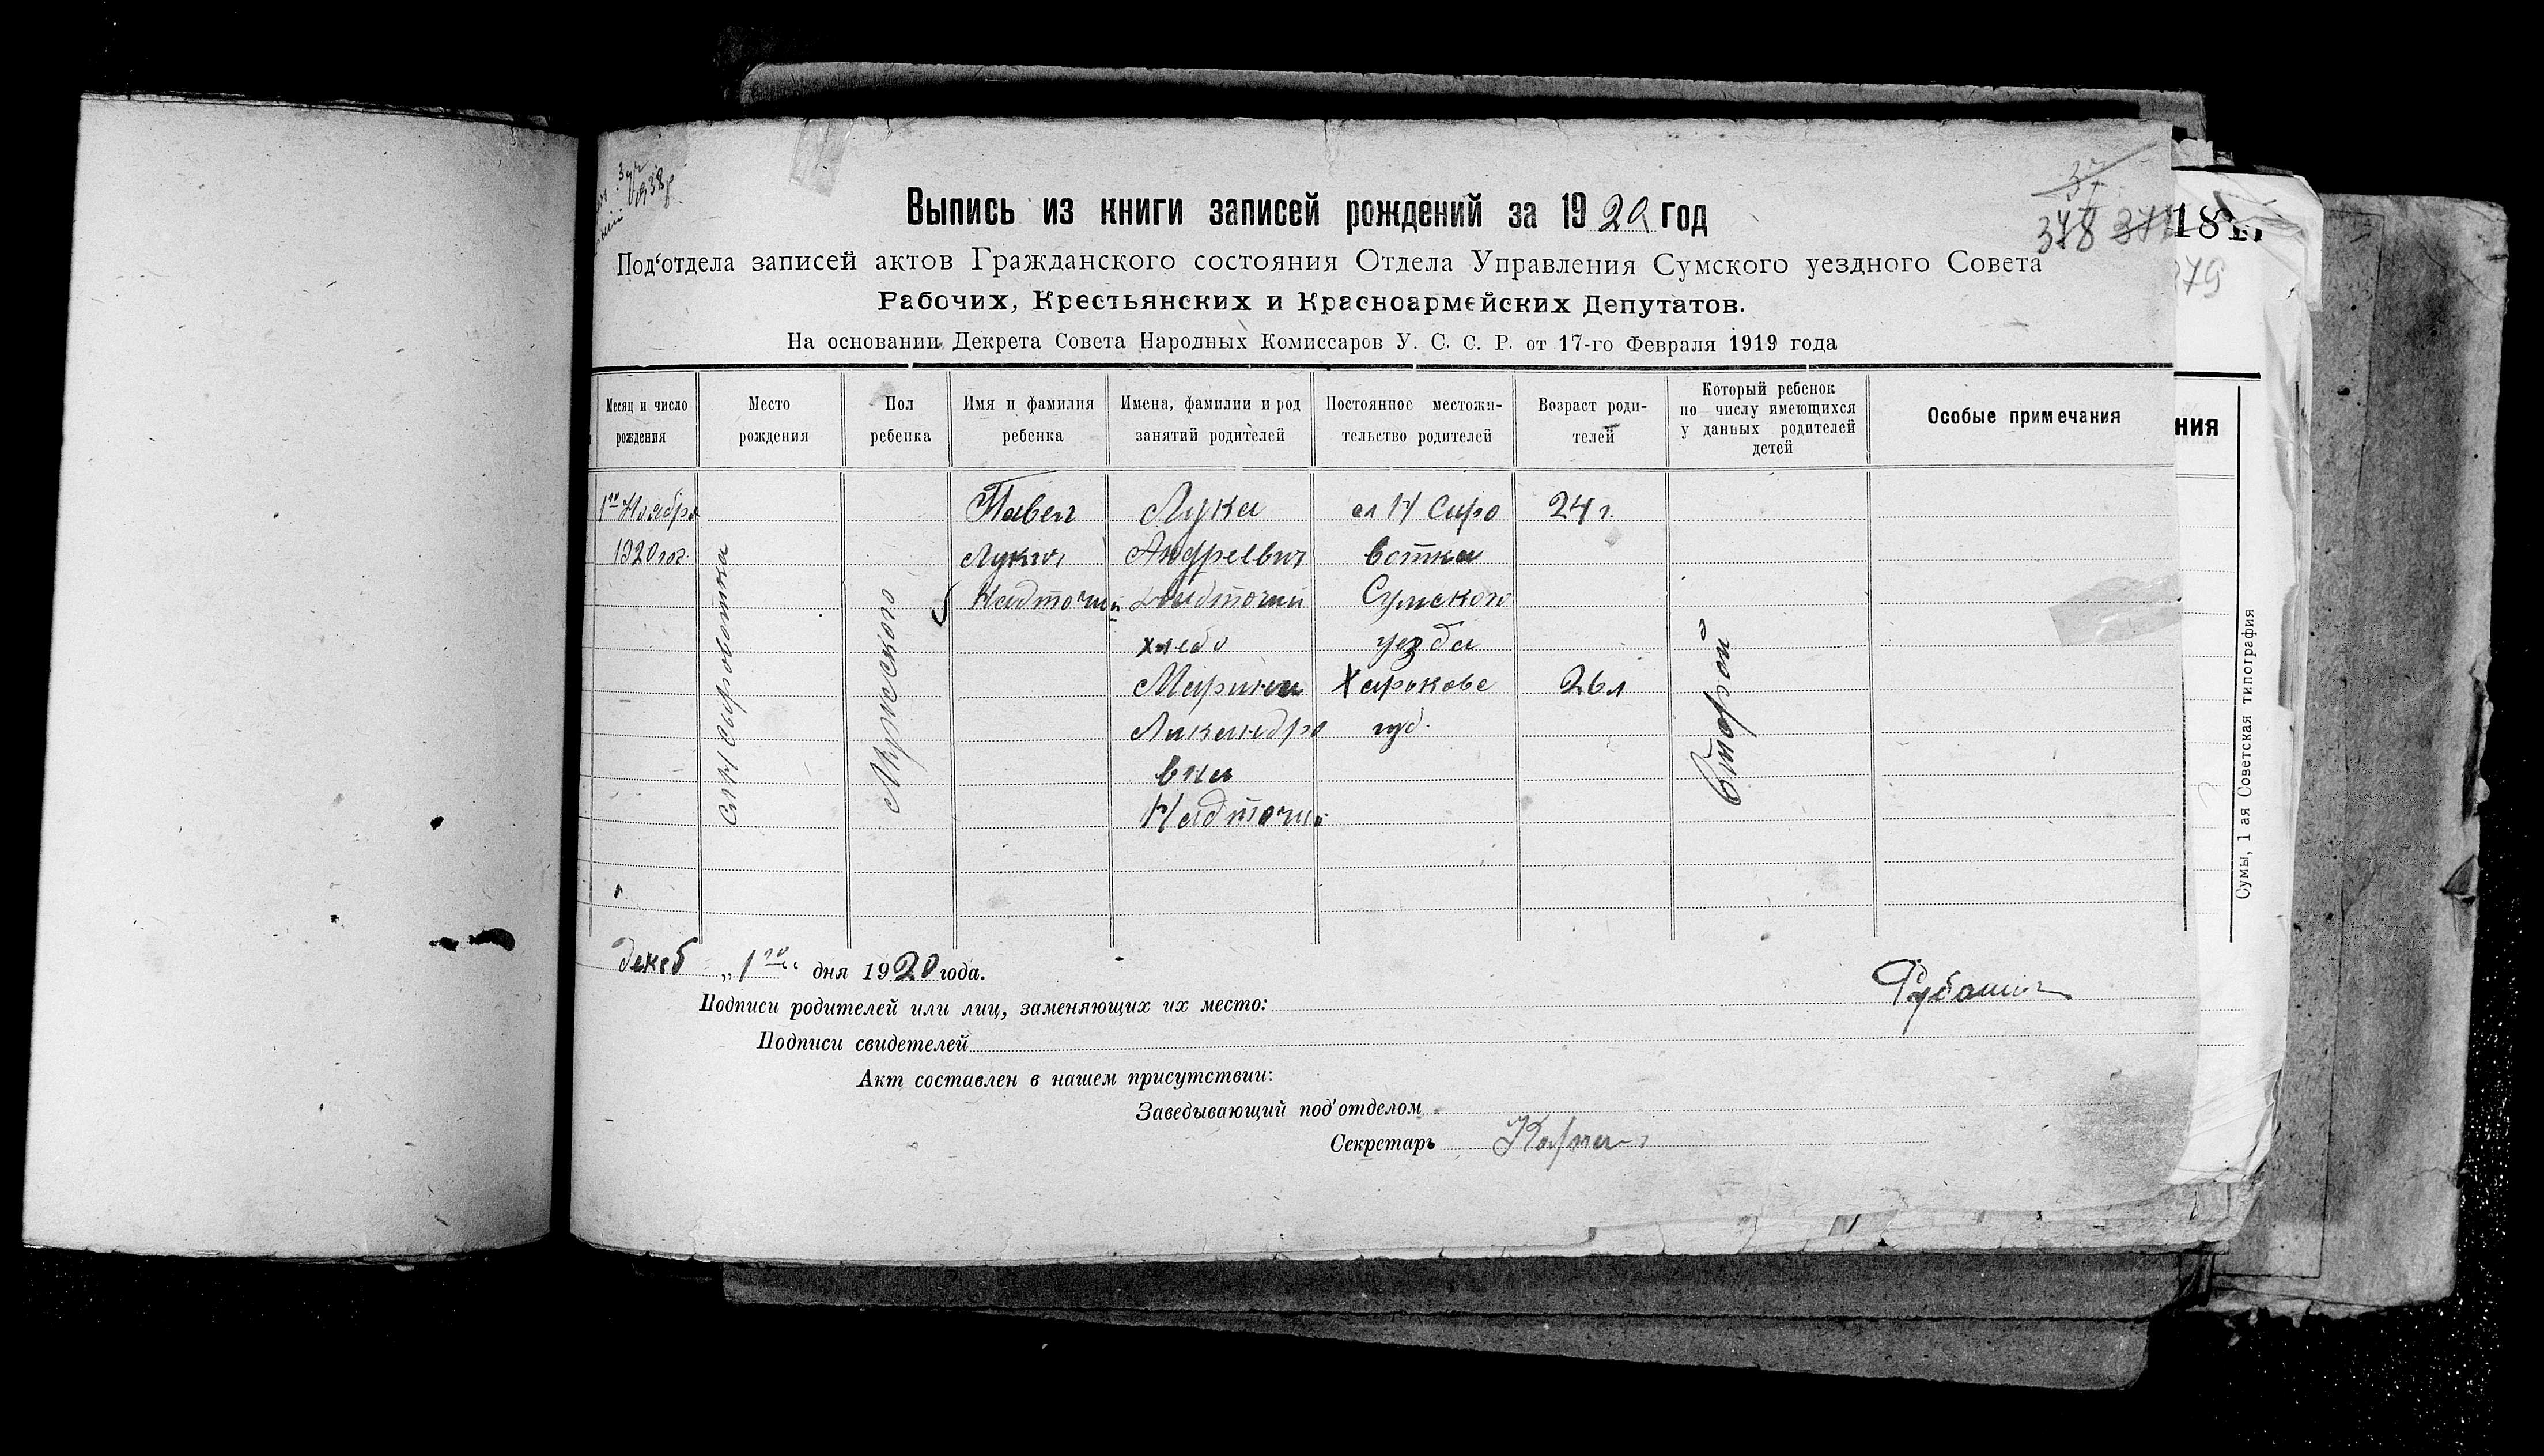 3уч
1938р.
37
378 371
181
379
Выпись из книги записей рождений за 1920 год
Под'отдела записей актов Гражданского состояния Отдела Управления Сумского уездного Совета
Рабочих, Крестьянских и Красноармейских Депутатов.
На основании Декрета Совета Народных Комиссаров У. С. С. Р. от 17-го Февраля 1919 года
Месяц и число
рождения
Место
рождения
Пол
ребенка
Имя и фамилия
ребенка
Имена, фамилии и род
занятий родителей
Постоянное местожи-
тельство родителей
Возраст роди-
телей
Который ребенок
по числу имеющихся
у данных родителей
детей
Особые примечания
ния
1го Ноября
1920 год.
сл Н Сыроватка
Мужского
Павел
Лукич
Надточий
Лука
Андреевич
Надточий
хлебо
Марина
Ликандро
вна
Надточий
сл Н Сыро
ватка
Сумского
уезда
Харькове
губ.
24 г.
26 л
Второй
декаб „1го“ дня 1920 года.
Подписи родителей или лиц, заменяющих их место:
Подписи свидетелей
Акт составлен в нашем присутствии:
Заведывающий под'отделом
Секретарь
Сумы, 1 ая Советская типография